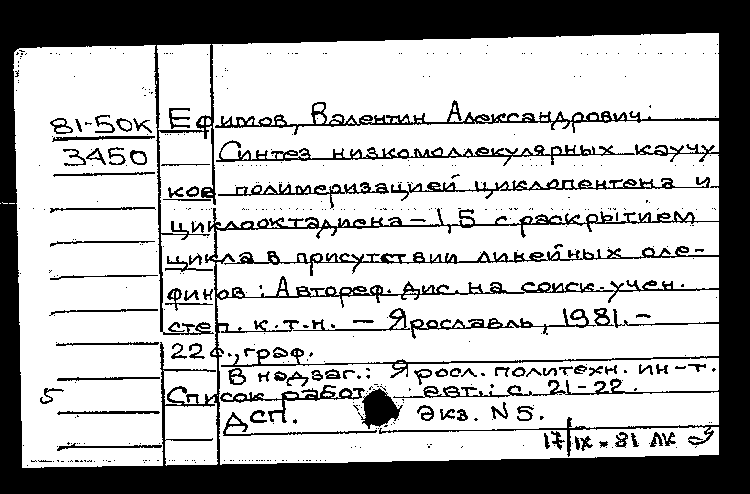 81-50К Ефимов, Валентин Александрович:
3450 Синтез низкомоллекулярных каучу
ков полимеризацией циклопентена и
циклооктадиена-1,5 с раскрытием
цикла в присутствии линейных оле-
финов: Автореф. дис. на соиск. учен.
степ. к.т.н. — Ярославль, 1981.-
22 с., граф.
В надзаг.: Яросл. политехн. ин-т.
5 Список работ авт.: с. 21-22.
ДСП. Экз. N 5.
17/IX-81 ЛК